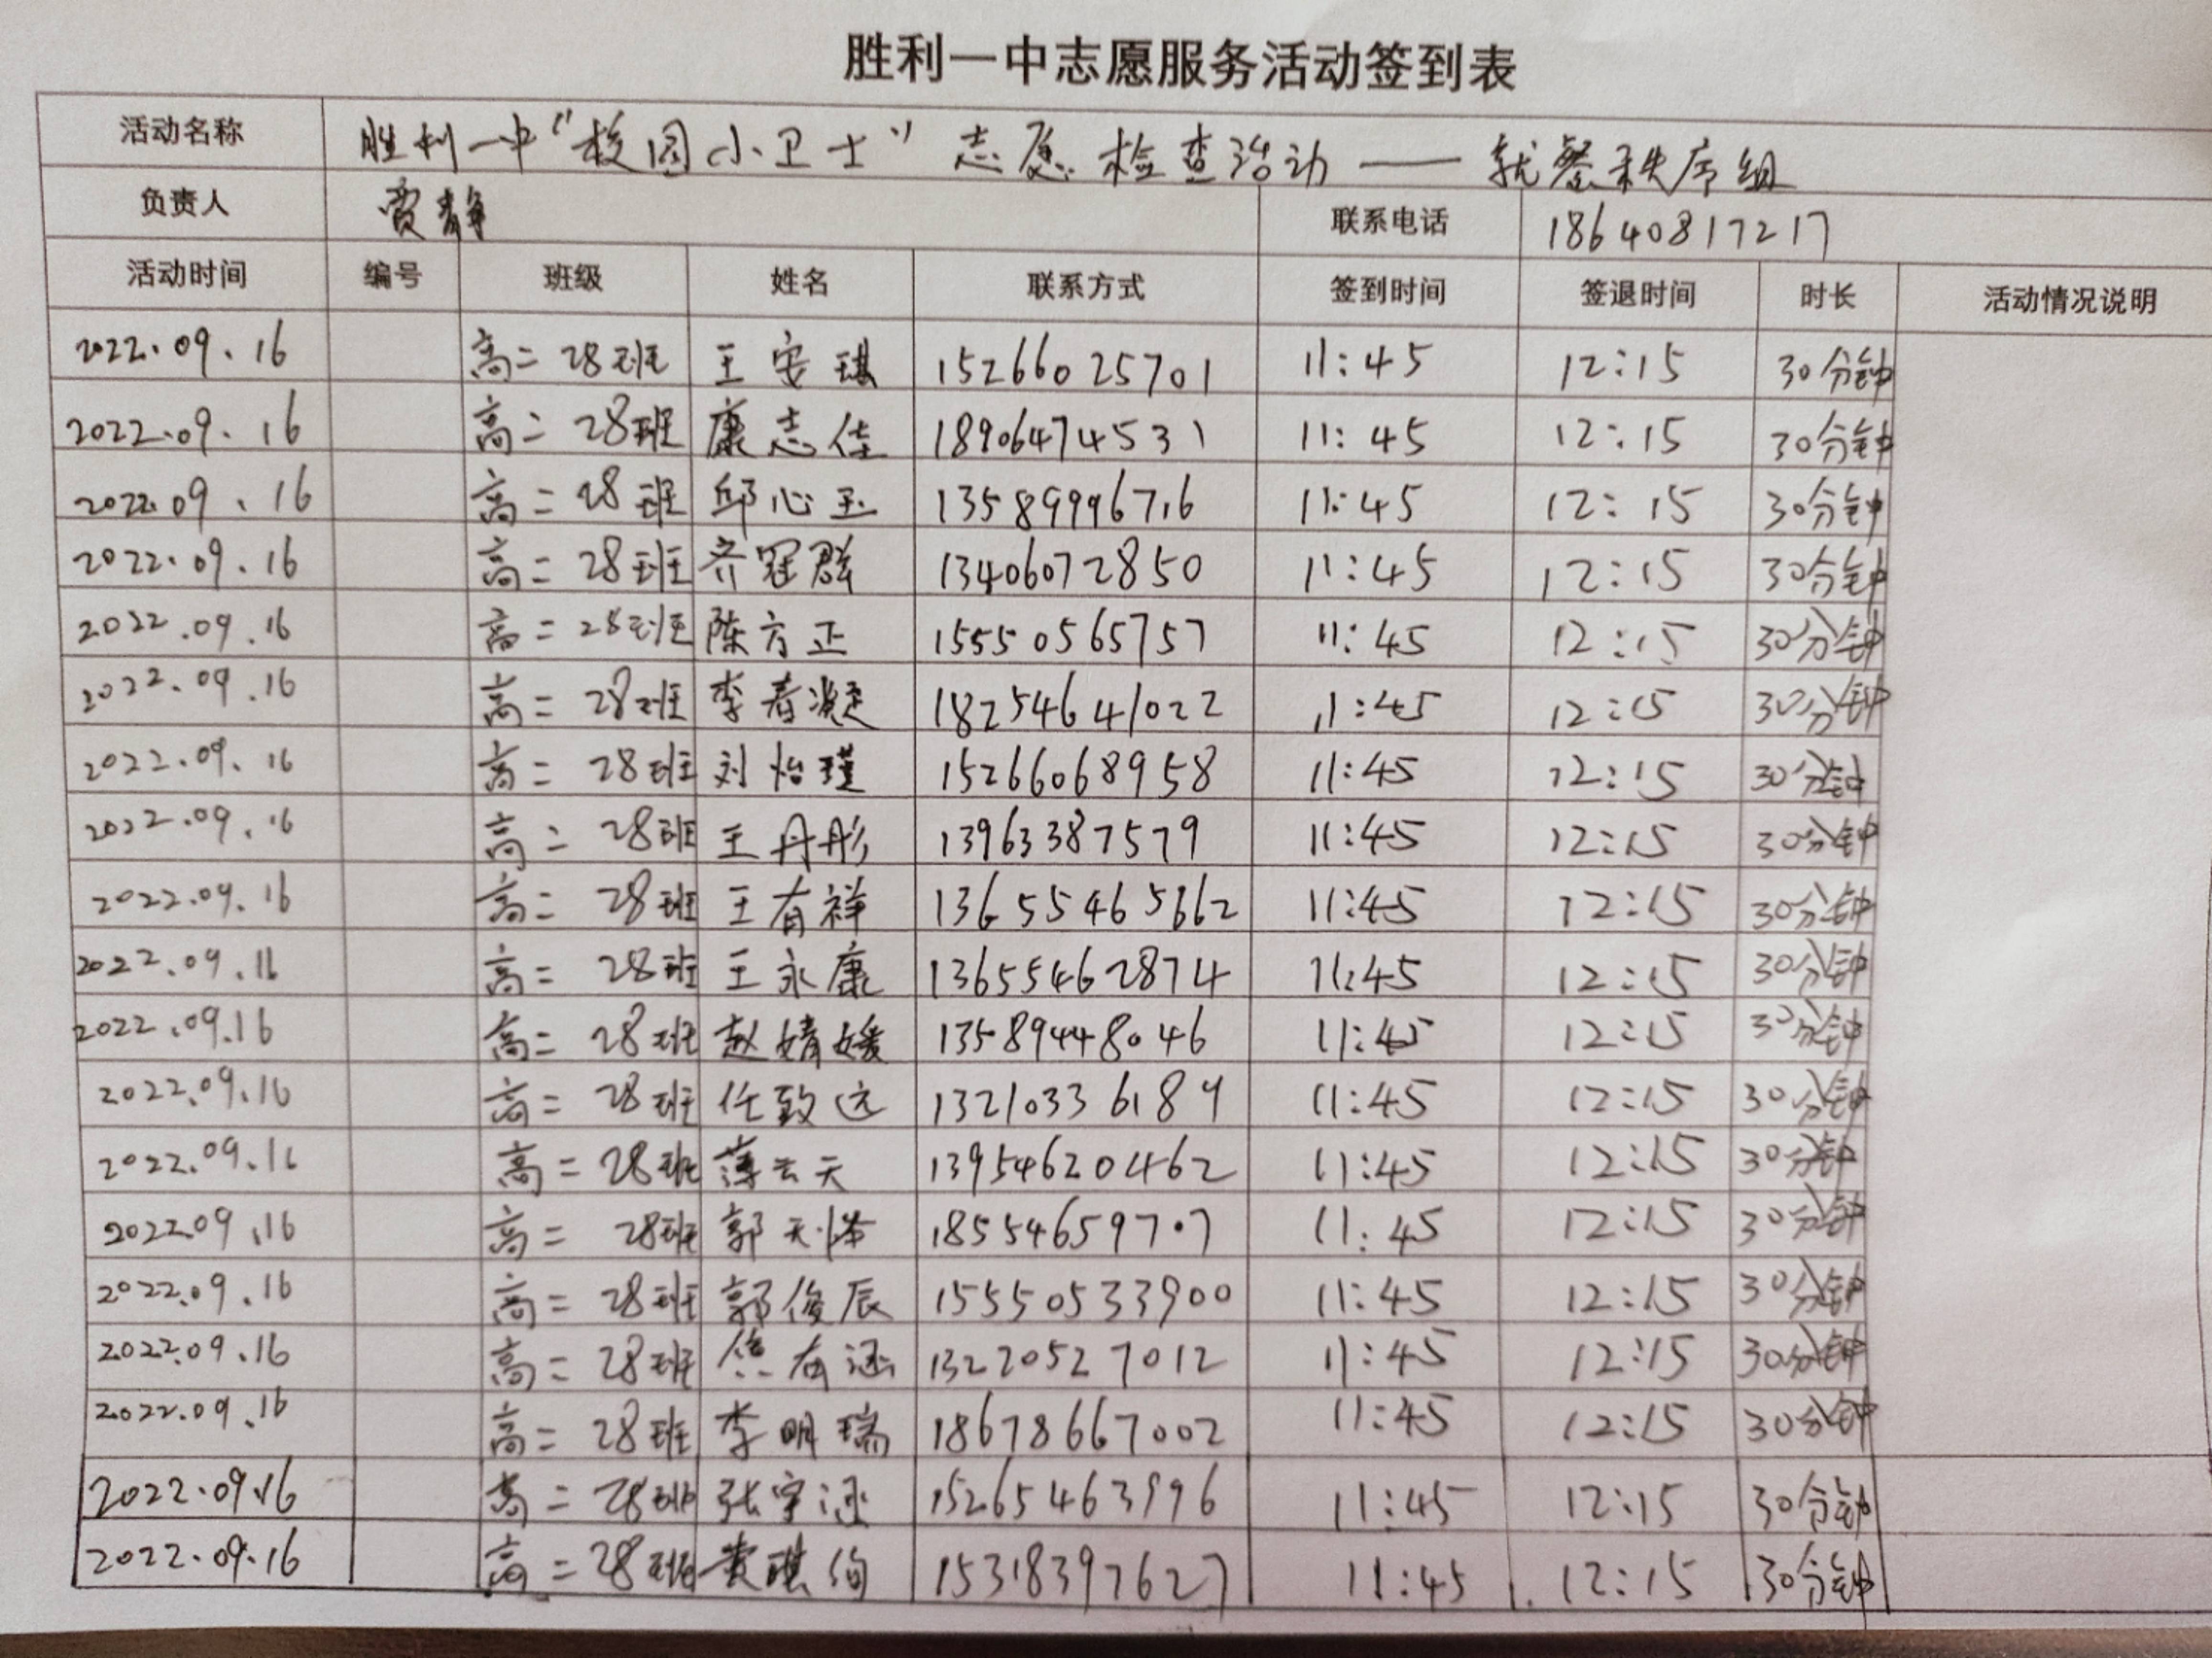 胜利一中志愿服务活动签到表
活动名称 胜利一中“校园小卫士”志愿检查活动——就餐秩序组
负责人 贾静 联系电话 18640817217
活动时间 编号 班级 姓名 联系方式 签到时间 签退时间 时长 活动情况说明
2022.09.16 高二28班 王安琪 15266025701 11:45 12:15 30分钟
2022.09.16 高二28班 康志佳 18906474531 11:45 12:15 30分钟
2022.09.16 高二28班 邱心玉 13589996716 11:45 12:15 30分钟
2022.09.16 高二28班 齐冠群 13406072850 11:45 12:15 30分钟
2022.09.16 高二28班 陈方正 15550565757 11:45 12:15 30分钟
2022.09.16 高二28班 李春凝 18254641022 11:45 12:15 30分钟
2022.09.16 高二28班 刘怡瑾 15266068958 11:45 12:15 30分钟
2022.09.16 高二28班 王丹彤 13963387579 11:45 12:15 30分钟
2022.09.16 高二28班 王有祥 13655465662 11:45 12:15 30分钟
2022.09.16 高二28班 王永康 13655462874 11:45 12:15 30分钟
2022.09.16 高二28班 赵婧媛 13589448046 11:45 12:15 30分钟
2022.09.16 高二28班 任致远 13210336189 11:45 12:15 30分钟
2022.09.16 高二28班 薄云天 13954620462 11:45 12:15 30分钟
2022.09.16 高二28班 18554659707 11:45 12:15 30分钟
2022.09.16 高二28班 郭俊辰 15550533900 11:45 12:15 30分钟
2022.09.16 高二28班 13220527012 11:45 12:15 30分钟
2022.09.16 高二28班 李明瑞 18678667002 11:45 12:15 30分钟
2022.09.16 高二28班 张宇涵 15265463996 11:45 12:15 30分钟
2022.09.16 高二28班 15318397627 11:45 12:15 30分钟